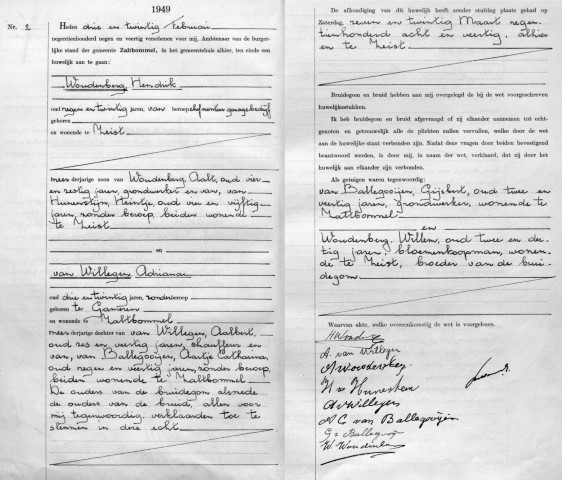 1949
Nr. 2
Heden drie en twintig februari
negentienhonderd negen en veertig verschenen voor mij, Ambtenaar van de burger-
lijke stand der gemeente Zaltbommel, in het gemeentehuis alhier, ten einde een
huwelijk aan te gaan:
Woudenberg, Hendrik
oud negen en twintig jaren, van beroep chef monteur garagebedrijf
geboren
en wonende te Zeist
meerderjarige zoon van Woudenberg, Aalt, oud vier
en zestig jaren, grondwerker en van, van
Hunerstijn, Heintje oud vier en vijftig
jaren, zonder beroep, beiden wonende
te Zeist
en
van Willegen Adriana
oud drie en twintig jaren, zonder beroep
geboren te Gameren
en wonende te Zaltbommel
meerderjarige dochter van van Willegen, Aalbert,
oud zes en veertig jaren, chauffeur en
van, van Ballegooijen, Aartje Catharina,
oud negen en veertig jaren, zonder beroep,
beiden wonende te Zaltbommel
De ouders van de bruidegom alsmede
de ouders van de bruid, allen voor
mij tegenwoordig, verklaarden toe te
stemmen in deze echt.
De afkondiging van dit huwelijk heeft zonder stuiting plaats gehad op
Zaterdag, zeven en twintig Maart negen-
tienhonderd acht en veertig, alhier
en te Zeist
Bruidegom en bruid hebben aan mij overgelegd de bij de wet voorgeschreven
huwelijksstukken.
Ik heb bruidegom en bruid afgevraagd of zij elkander aannemen tot echt-
genoten en getrouwelijk alle de plichten zullen vervullen, welke door de wet
aan de huwelijke staat verbonden zijn. Nadat deze vragen door beiden bevestigend
beantwoord werden, is door mij, in naam der wet, verklaard, dat zij door het
huwelijk aan elkander zijn verbonden.
Als getuigen waren tegenwoordig:
van Ballegooijen, Gijsbert, oud twee en
veertig jaren, grondwerker, wonende te
Zaltbommel
en
Woudenberg, Willem, oud twee en der-
tig jaren, bloemenkoopman, wonen-
de te Zeist, broeder van de brui-
degom
Waarvan akte, welke overeenkomstig de wet is voorgelezen.
A. van Willegen
A Woudenberg
A v Willegen
A C van Ballegooijen
G v Ballegooij
W. Woudenberg